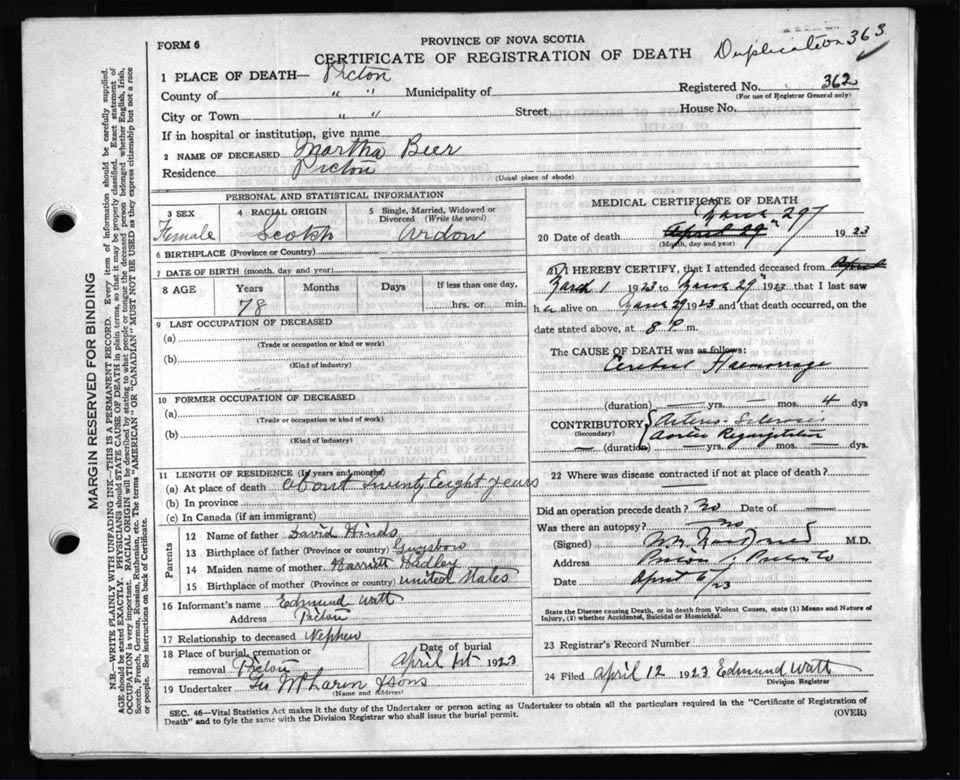 FORM 6
PROVINCE OF NOVA SCOTIA
CERTIFICATE OF REGISTRATION OF DEATH
Duplication 363
1 PLACE OF DEATH— Picton
Registered No. 362
(For use of Registrar General only)
County of " " Municipality of
City or Town " " Street House No.
If in hospital or institution, give name
2 NAME OF DECEASED Martha Beer
Residence Picton
(Usual place of abode)
PERSONAL AND STATISTICAL INFORMATION
3 SEX
Female
4 RACIAL ORIGIN
Scotch
5 Single, Married, Widowed or Divorced (Write the word)
6 BIRTHPLACE (Province or Country)
7 DATE OF BIRTH (month, day and year)
8 AGE Years Months Days If less than one day,
78 hrs. or min.
9 LAST OCCUPATION OF DECEASED
(a)
(Trade or occupation or kind or work)
(b)
(Kind of industry)
10 FORMER OCCUPATION OF DECEASED
(a)
(Trade or occupation or kind of work)
(b)
(Kind of industry)
11 LENGTH OF RESIDENCE (In years and months)
(a) At place of death about Twenty Eight years
(b) In province
(c) In Canada (if an immigrant)
Parents
12 Name of father David Hinds
13 Birthplace of father (Province or country) Guysboro
14 Maiden name of mother Harriett Hadley
15 Birthplace of mother (Province or country) united States
16 Informant's name Edmund Watt
Address Picton
17 Relationship to deceased Nephew
18 Place of burial, cremation or removal Picton
Date of burial
April 1st 1923
19 Undertaker Geo McLaren & Sons
(Name and Address)
MEDICAL CERTIFICATE OF DEATH
March 29
20 Date of death April 29" 1923
(Month, day and year)
21 I HEREBY CERTIFY, that I attended deceased from April
March 1 1923 to March 29" 1923 that I last saw
her alive on March 29 1923 and that death occurred, on the
date stated above, at 8 P m.
The CAUSE OF DEATH was as follows:
Cerebral Haemorrage
(duration) yrs. mos. 4 dys
CONTRIBUTORY Arterio Sclerosis
(Secondary) Aortic Regurgitation
(duration) yrs. mos. dys
22 Where was disease contracted if not at place of death?
Did an operation precede death? no Date of
Was there an autopsy? no
(Signed) M.D.
Address
Date April 6/23
State the Disease causing Death, or in death from Violent Causes, state (1) Means and Nature of Injury, (2) whether Accidental, Suicidal or Homicidal.
23 Registrar's Record Number
24 Filed April 12 1923 Edmund Watt
Division Registrar
SEC. 46—Vital Statistics Act makes it the duty of the Undertaker or person acting as Undertaker to obtain all the particulars required in the "Certificate of Registration of
Death" and to fyle the same with the Division Registrar who shall issue the burial permit.
(OVER)
MARGIN RESERVED FOR BINDING
N.B.—WRITE PLAINLY WITH UNFADING INK—THIS IS A PERMANENT RECORD. Every item of information should be carefully supplied.
AGE should be stated EXACTLY. PHYSICIANS should STATE CAUSE OF DEATH in plain terms, so that it may be properly classified. Exact statement of
OCCUPATION is very important. RACIAL ORIGIN will be described by stating to what people or tongue the deceased person belonged whether English, Irish,
Scotch, French, German, Russian, Ruthenian, etc. The terms "AMERICAN" or "CANADIAN" MUST NOT BE USED as they express citizenship but not a race
or people. See instructions on back of Certificate.